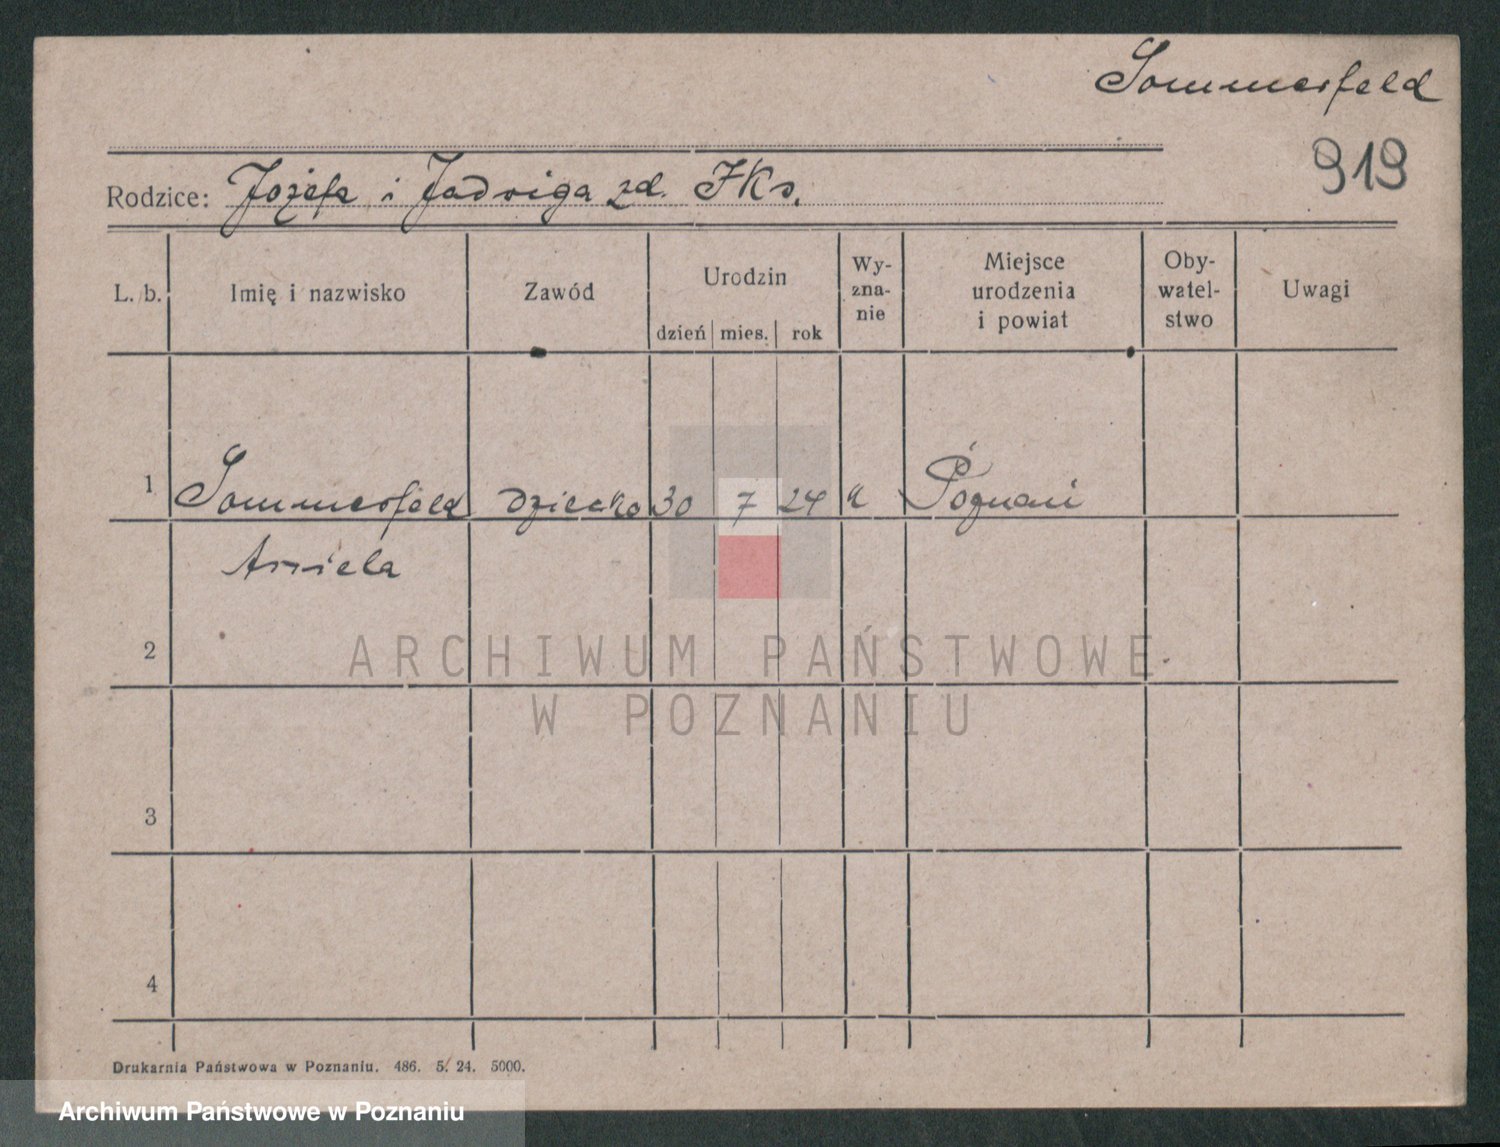 Sommerfeld
919
Rodzice: Józefa i Jadwiga zd.
L. b. Imię i nazwisko Zawód Urodzin dzień mies. rok Wy-zna-nie Miejsce urodzenia i powiat Oby-watel-stwo Uwagi
1 Sommerfeld Dziecko 30 7 24 k Poznań
Aniela
2
ARCHIWUM PAŃSTWOWE
W POZNANIU
3
4
Drukarnia Państwowa w Poznaniu. 486. 5. 24. 5000.
Archiwum Państwowe w Poznaniu